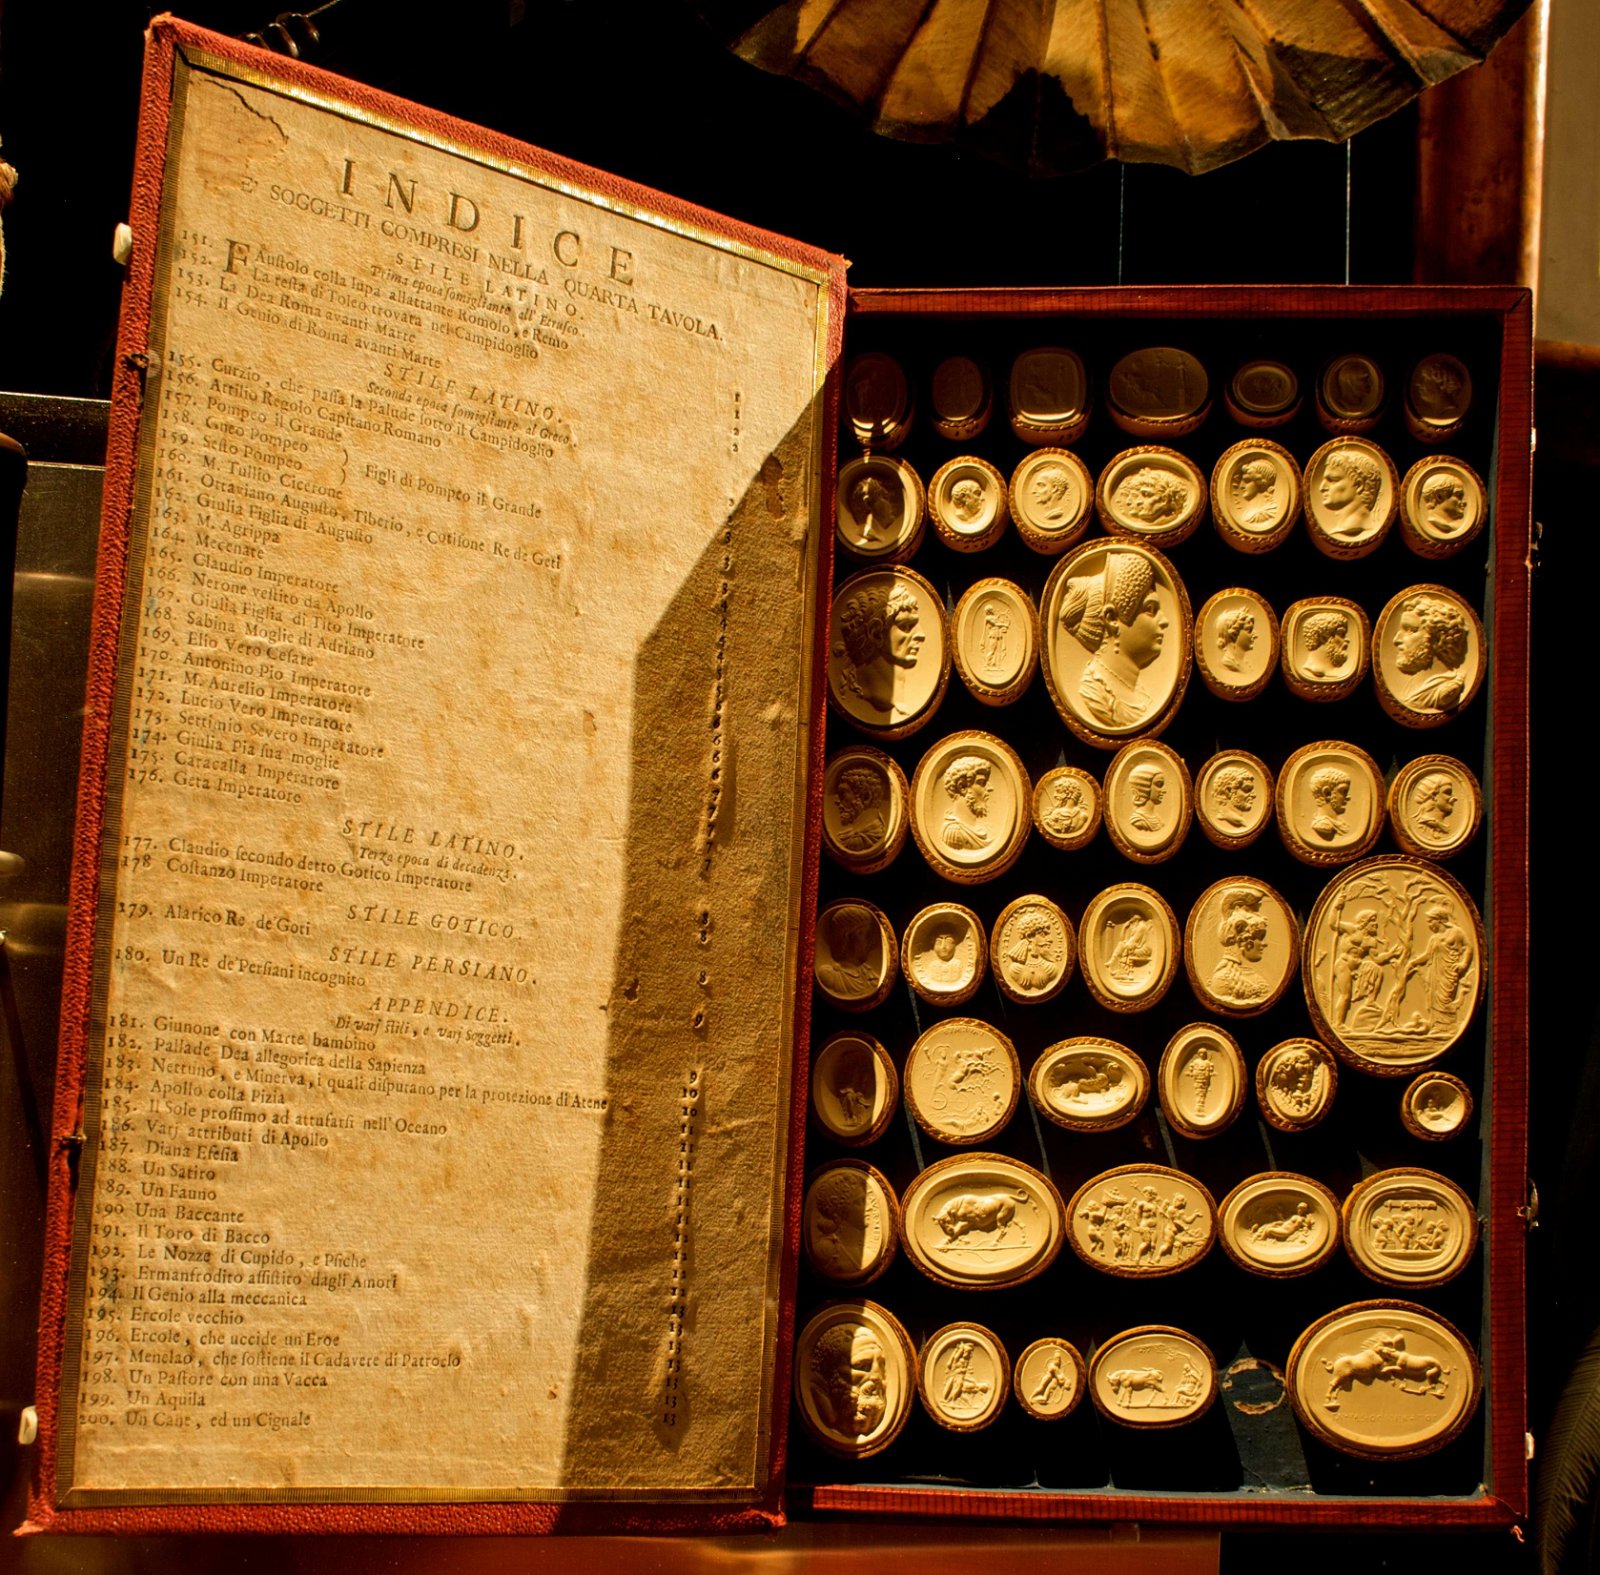 INDICE
E' SOGGETTI COMPRESI NELLA QUARTA TAVOLA.
STILE LATINO.
Prima epoca somigliante all' Etrusco.
151. FAustolo colla lupa allattante Romolo, e Remo
152. La testa di Toleo trovata nel Campidoglio
153. La Dea Roma avanti Marte
154. Il Genio di Roma avanti Marte
STILE LATINO.
Seconda epoca somigliante al Greco.
155. Curzio, che passa la Palude sotto il Campidoglio
156. Attilio Regolo Capitano Romano
157. Pompeo il Grande
158. Gneo Pompeo
159. Sesto Pompeo } Figli di Pompeo il Grande
160. M. Tullio Cicerone
161. Ottaviano Augusto, Tiberio, e Cotisone Re de Geti
162. Giulia Figlia di Augusto
163. M. Agrippa
164. Mecenate
165. Claudio Imperatore
166. Nerone vestito da Apollo
167. Giulia Figlia di Tito Imperatore
168. Sabina Moglie di Adriano
169. Elio Vero Cesare
170. Antonino Pio Imperatore
171. M. Aurelio Imperatore
172. Lucio Vero Imperatore
173. Settimio Severo Imperatore
174. Giulia Pia sua moglie
175. Caracalla Imperatore
176. Geta Imperatore
STILE LATINO.
Terza epoca di decadenza.
177. Claudio secondo detto Gotico Imperatore
178 Costanzo Imperatore
STILE GOTICO.
179. Alarico Re de'Goti
STILE PERSIANO.
180. Un Re de'Persiani incognito
APPENDICE.
Di varj stili, e varj Soggetti.
181. Giunone con Marte bambino
182. Pallade Dea allegorica della Sapienza
183. Nettuno, e Minerva, i quali disputano per la protezione di Atene
184. Apollo colla Pizia
185. Il Sole prossimo ad attufarsi nell'Oceano
186. Varj attributi di Apollo
187. Diana Efesia
188. Un Satiro
189. Un Fauno
190 Una Baccante
191. Il Toro di Bacco
192. Le Nozze di Cupido, e Psiche
193. Ermanfrodito assistito dagli Amori
194. Il Genio alla meccanica
195. Ercole vecchio
196. Ercole, che uccide un Eroe
197. Menelao, che sostiene il Cadavere di Patroclo
198. Un Pastore con una Vacca
199. Un Aquila
200. Un Cane, ed un Cignale